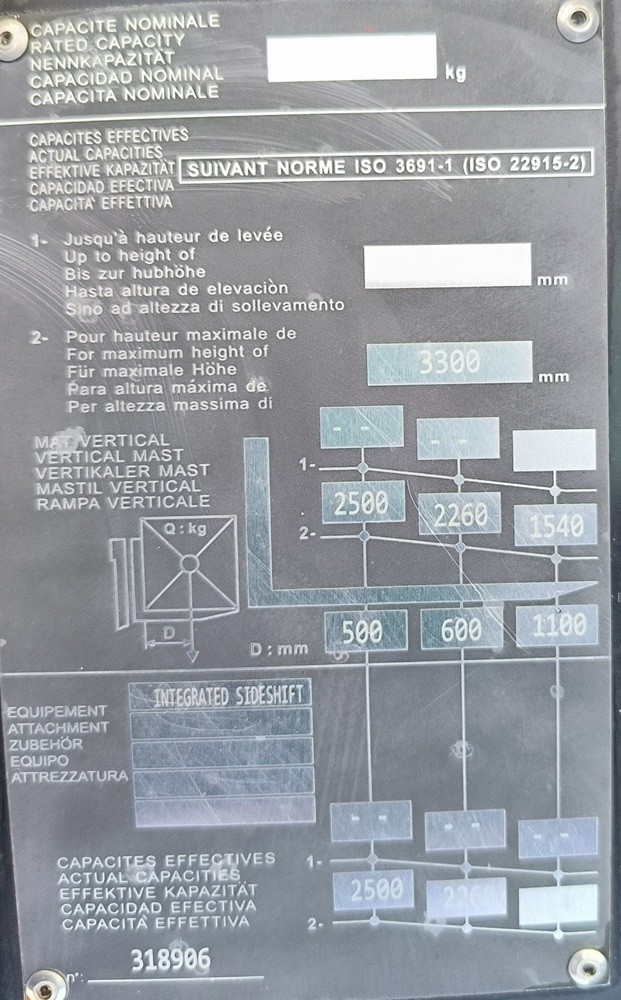 CAPACITE NOMINALE
RATED CAPACITY
NENNKAPAZITÄT
CAPACIDAD NOMINAL
CAPACITA NOMINALE
kg
CAPACITES EFFECTIVES
ACTUAL CAPACITIES
EFFEKTIVE KAPAZITÄT
CAPACIDAD EFECTIVA
CAPACITA' EFFETTIVA
SUIVANT NORME ISO 3691-1 (ISO 22915-2)
1- Jusqu'à hauteur de levée
Up to height of
Bis zur hubhöhe
Hasta altura de elevaciòn
Sino ad altezza di sollevamento
mm
2- Pour hauteur maximale de
For maximum height of
Für maximale Höhe
Para altura máxima de
Per altezza massima di
3300 mm
MAT VERTICAL
VERTICAL MAST
VERTIKALER MAST
MASTIL VERTICAL
RAMPA VERTICALE
- - - -
1-
2500 2260 1540
2-
Q : kg
D
D : mm
500 600 1100
INTEGRATED SIDESHIFT
EQUIPEMENT
ATTACHMENT
ZUBEHÖR
EQUIPO
ATTREZZATURA
- - - - - -
CAPACITES EFFECTIVES
ACTUAL CAPACITIES
EFFEKTIVE KAPAZITÄT
CAPACIDAD EFECTIVA
CAPACITÀ EFFETTIVA
1-
2500 2260
2-
n°: 318906